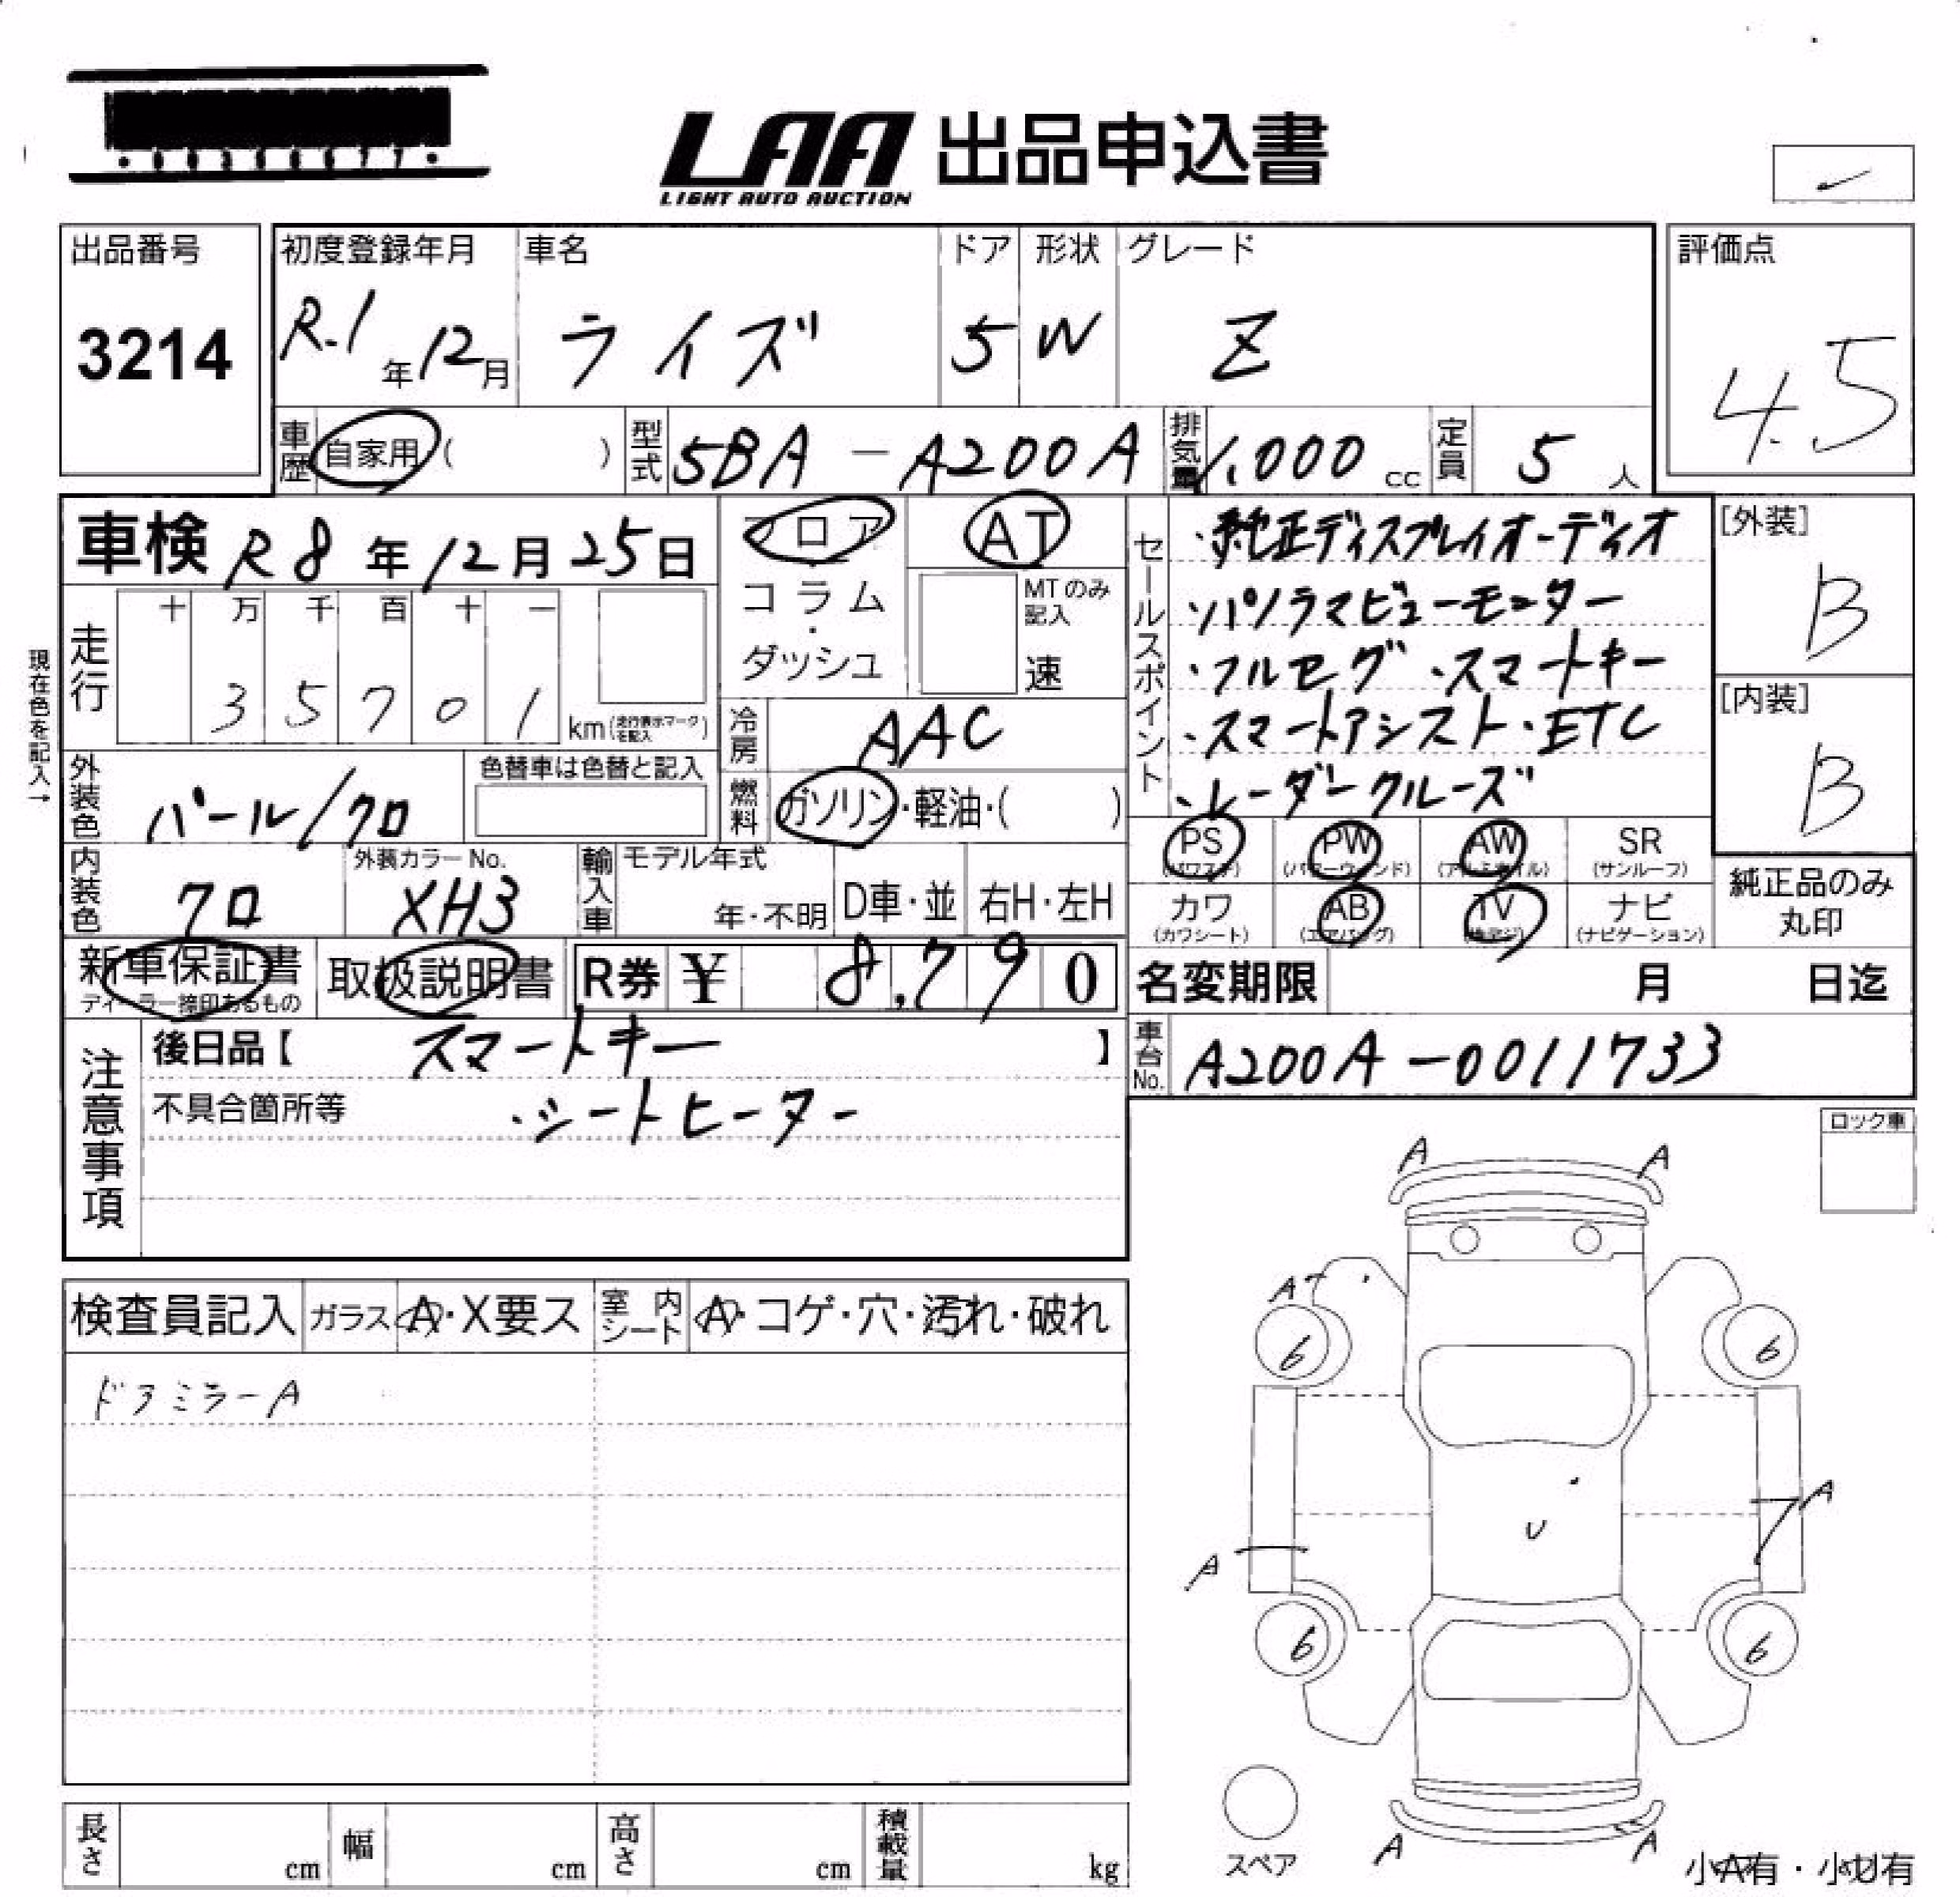 LAA 出品申込書
LIGHT AUTO AUCTION
出品番号
3214
初度登録年月 車名 ドア 形状 グレード
R.1年12月 ライズ 5 W Z
評価点
4.5
車歴 自家用 ( ) 型式 5BA-A200A 排気量 1.000 cc 定員 5 人
車検 R8年12月25日
フロア・コラム・ダッシュ
AT
MTのみ記入
速
現在色を記入→
走行
十 万 千 百 十 一
3 5 7 0 1
km (走行表示マークを記入)
冷房 AAC
燃料 ガソリン・軽油・( )
外装色 パール/クロ
色替車は色替と記入
内装色 クロ
外装カラーNo.
XH3
輸入車 モデル年式
年・不明 D車・並 右H・左H
セールスポイント
・純正ディスプレイオーディオ
・パノラマビューモニター
・フルセグ ・スマートキー
・スマートアシスト・ETC
・レーダークルーズ
[外装]
B
[内装]
B
PS PW AW SR
(パワステ) (パワーウィンド) (アルミホイル) (サンルーフ)
カワ AB TV ナビ
(カワシート) (エアバッグ) (ナビゲーション)
純正品のみ
丸印
新車保証書
ディーラー捺印あるもの
取扱説明書
R券 ¥ 8,790
名変期限 月 日迄
車台No. A200A-0011733
注意事項
後日品【 スマートキー 】
不具合箇所等 ・シートヒーター
ロック車
検査員記入 ガラス A・X要ス 室内シート A・コゲ・穴・汚れ・破れ
ドアミラーA
A A
A
6 6
A
U
A
6 6
スペア
A A
小A有・小U有
長さ cm 幅 cm 高さ cm 積載量 kg